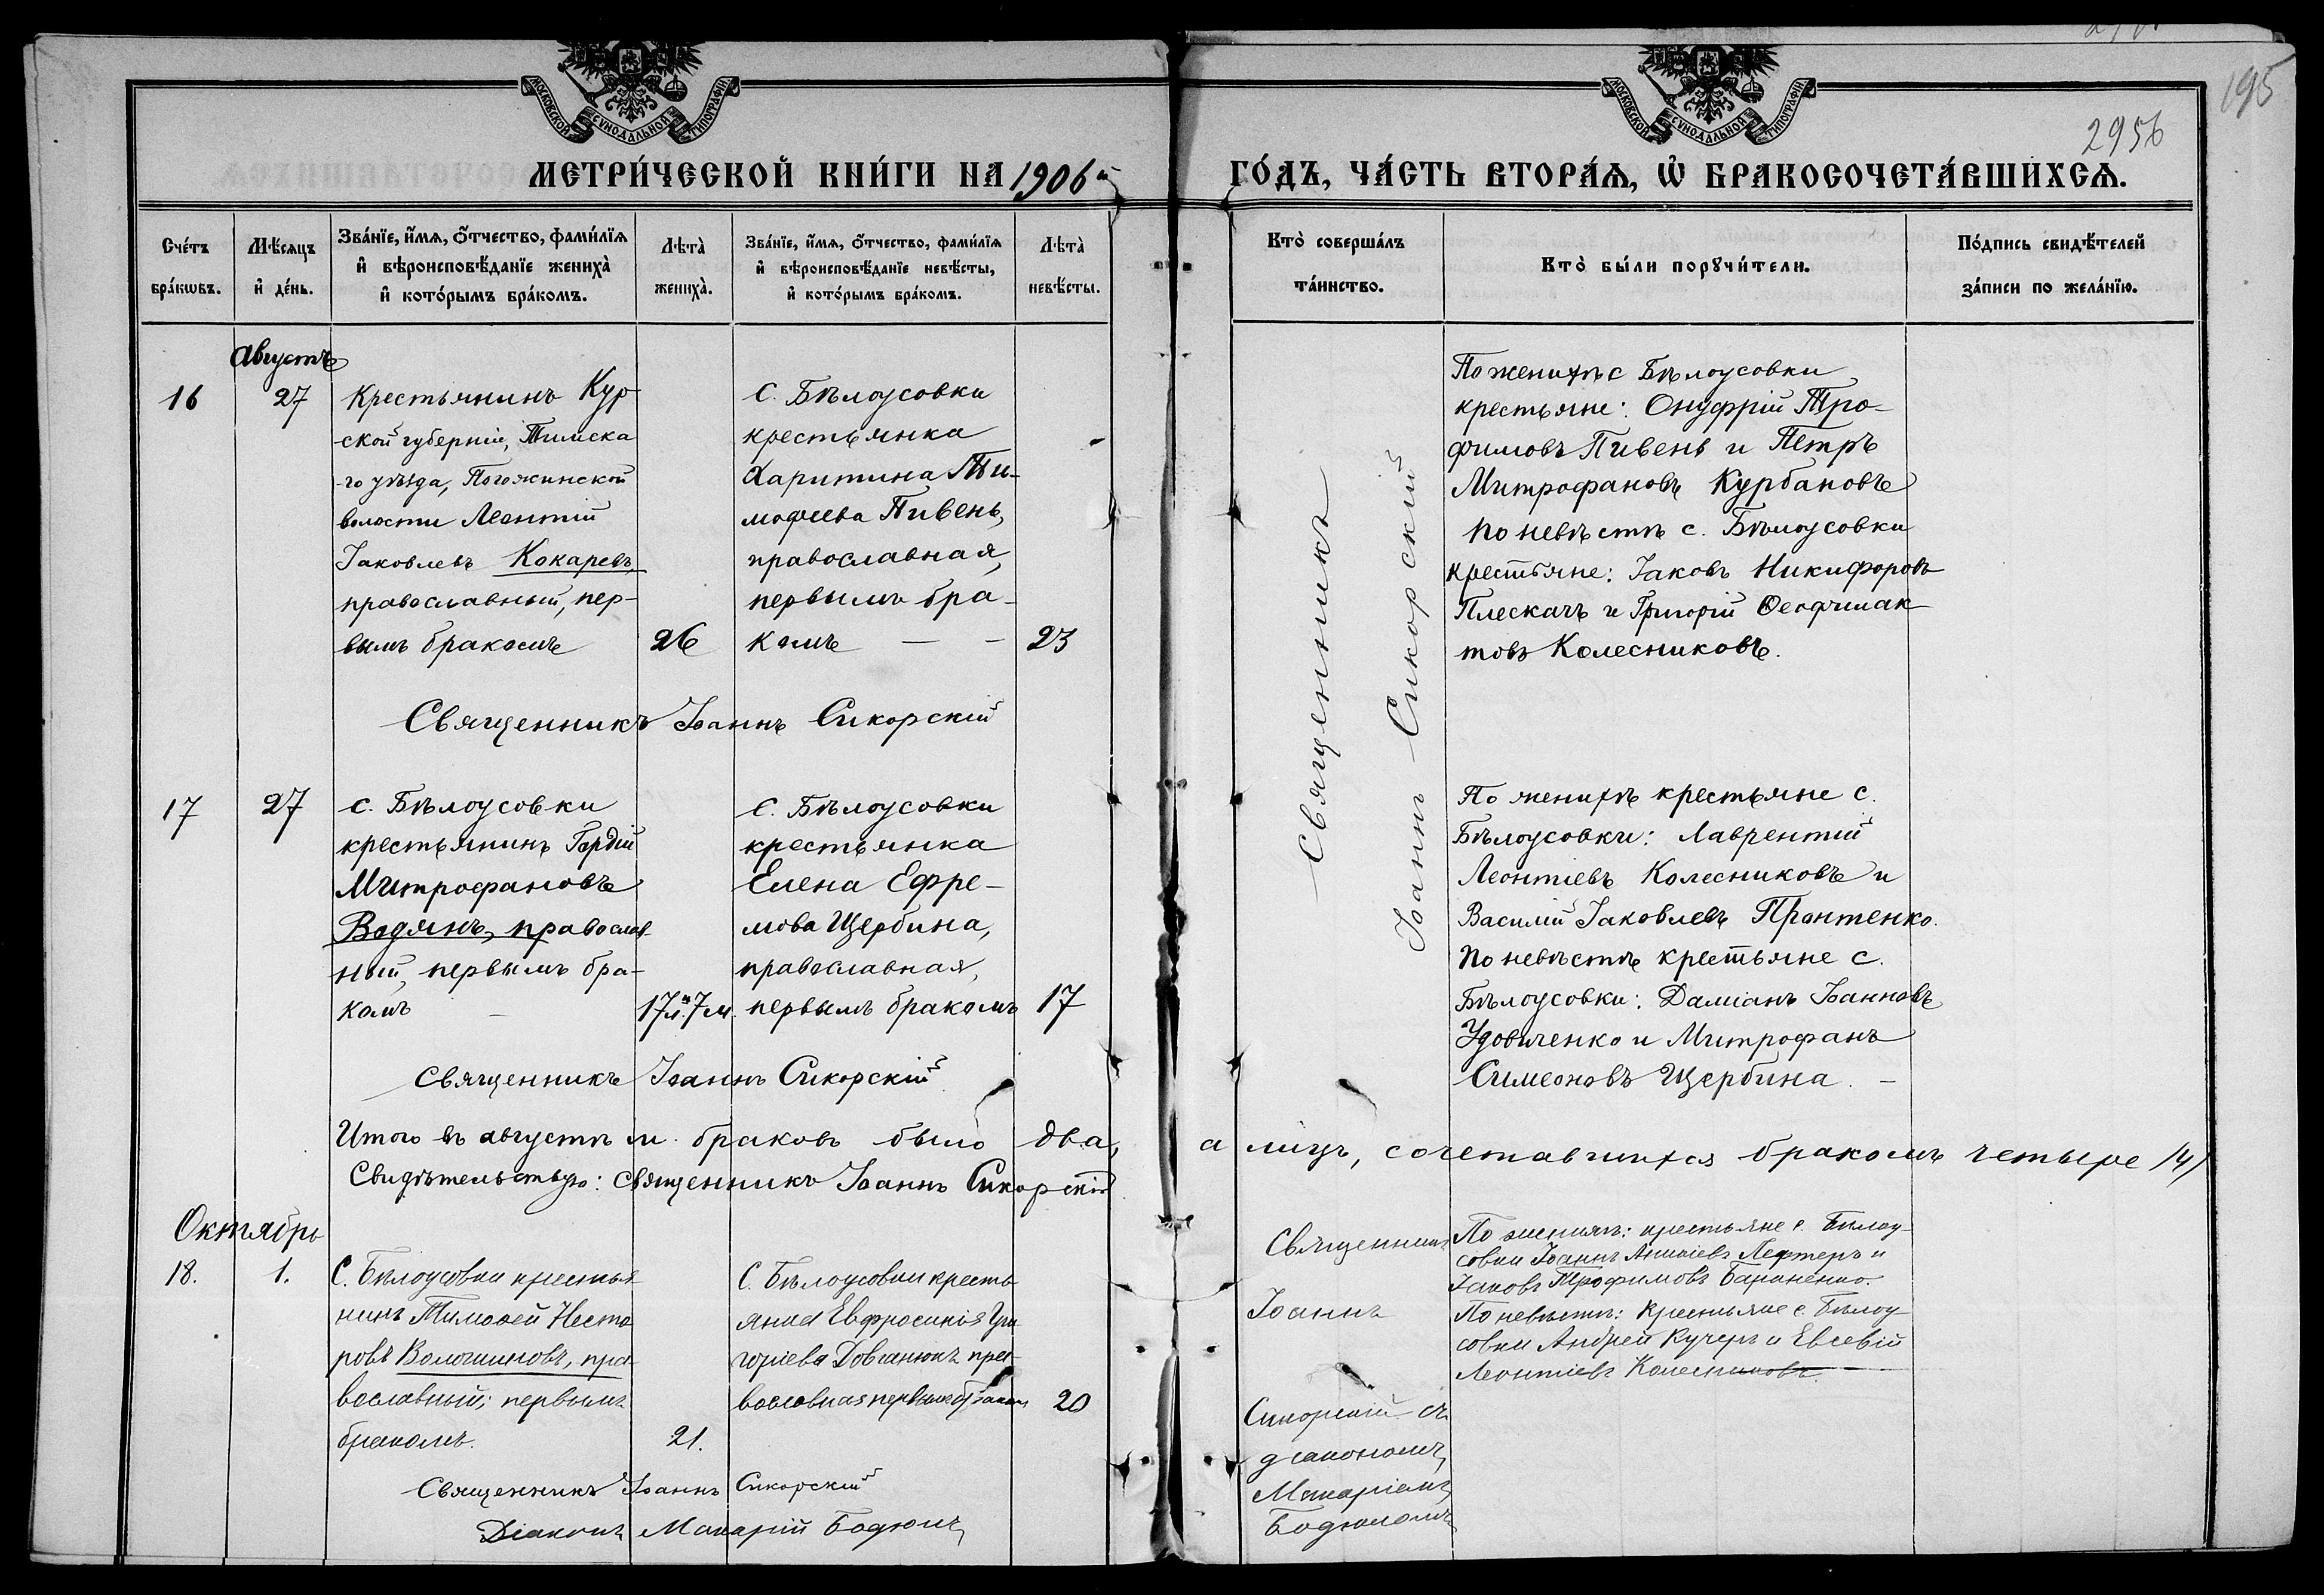 195
2956
МОСКОВСКОЙ СѴНОДАЛЬНОЙ ТИПОГРАФІИ
МОСКОВСКОЙ СѴНОДАЛЬНОЙ ТИПОГРАФІИ
МЕТРИ́ЧЕСКОЙ КНИ́ГИ НА 1906й
ГО́ДЪ, ЧА́СТЬ ВТОРА́Я, Ѡ҆ БРАКОСОЧЕТА́ВШИХСЯ.
Сче́тъ
бра́кѡвъ.
Мѣ́сяцъ
и҆ де́нь.
Зва́нїе, и҆́мя, о҆́тчество, фами́лїя
и҆ вѣроисповѣ́данїе жениха̀
и҆ кото́рымъ бра́комъ.
Лѣта̀
жениха̀.
Зва́нїе, и҆́мя, о҆́тчество, фами́лїя
и҆ вѣроисповѣ́данїе невѣ́сты,
и҆ кото́рымъ бра́комъ.
Лѣта̀
невѣ́сты.
Кто̀ соверша́лъ
та́инство.
Кто̀ бы́ли порꙋчи́тели.
По́дпись свидѣ́телей
за́писи по жела́нїю.
Августъ
16
27
Крестьянинъ Кур-
ской губерніи, Тимска
-го уѣзда, Погожинской
волости Леонтій
Іаковлевъ Кокаревъ,
православный, пер-
вымъ бракомъ
26
С. Бѣлоусовки
крестьянка
Харитина Ти-
мофеева Пивень,
православная,
первымъ бра-
комъ — -
23
Священникъ Іоаннъ Сикорскій
Священникъ
Іоаннъ Сикорскій
По женихѣ с Бѣлоусовки
крестьяне: Онуфрій Тро-
фимовъ Пивень и Петръ
Митрофановъ Курбановъ
по невѣстѣ с. Бѣлоусовки
крестьяне: Іаковъ Никифоровъ
Плескачъ и Григорій Ѳеофилак-
товъ Колесниковъ.
17
27
с. Бѣлоусовки
крестьянинъ Гордій
Митрофановъ
Водянъ, православ-
ный, первымъ бра-
комъ
17 л. 7 м.
С. Бѣлоусовки
крестьянка
Елена Ефре-
мова Щербина,
православная,
первымъ бракомъ
17
Священникъ Іоаннъ Сикорскій
По женихѣ крестьяне с.
Бѣлоусовки: Лаврентій
Леонтіевъ Колесниковъ и
Василій Іаковлевъ Протенко.
По невѣстѣ крестьяне с.
Бѣлоусовки: Даміанъ Іоанновъ
Удовиченко и Митрофанъ
Симеоновъ Щербина. -
Итого въ августѣ м. браковъ было два, а лицъ, сочетавшихся бракомъ четыре /4/
Свидѣтельствую: священникъ Іоаннъ Сикорскій
Октябрь
18.
1.
С. Бѣлоусовки крестья
нинъ Тимоѳей Несто
ровъ Волошиновъ, пра
вославный, первымъ
бракомъ.
21.
С. Бѣлоусовки кресть
янка Евфросинія Гри
горіева Довганюкъ пра
вославная первымъ бракомъ
20
Священникъ
Іоаннъ
Сикорскій съ
діакономъ
Макаріемъ
По женихѣ: крестьяне с. Бѣлоу-
совки Іоаннъ Лефтеръ и
Іаковъ Трофимовъ Бараненко.
По невѣстѣ: Крестьяне с. Бѣлоу-
совки Андрей Кучеръ и Евсевій
Леонтіевъ Колесниковъ.
Священникъ Іоаннъ Сикорскій
Діаконъ Макарій